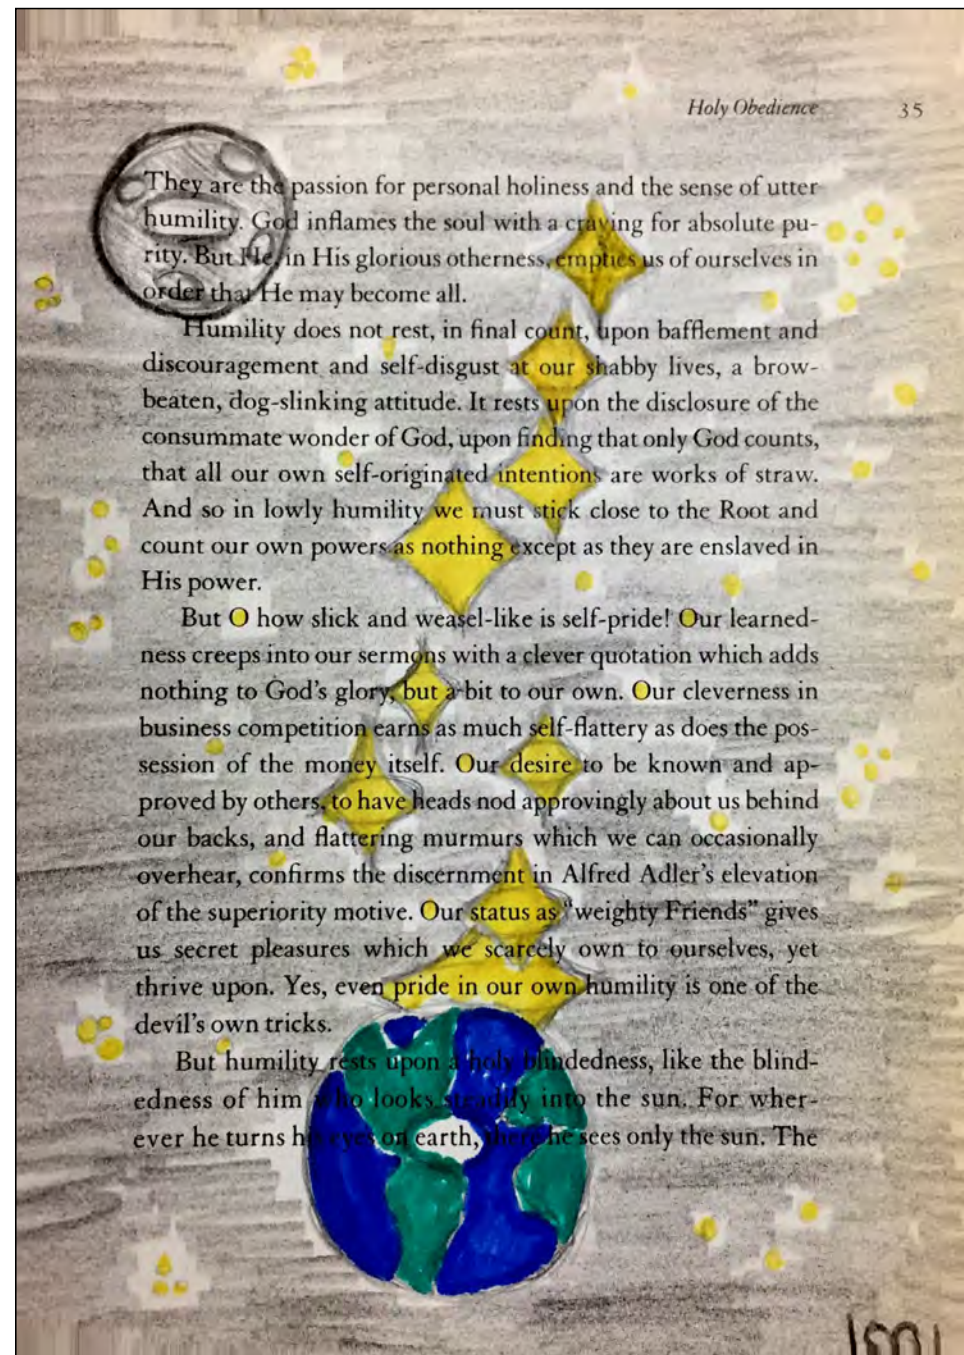 Holy Obedience 35
They are the passion for personal holiness and the sense of utter
humility. God inflames the soul with a craving for absolute pu-
rity. But He, in His glorious otherness, empties us of ourselves in
order that He may become all.
Humility does not rest, in final count, upon bafflement and
discouragement and self-disgust at our shabby lives, a brow-
beaten, dog-slinking attitude. It rests upon the disclosure of the
consummate wonder of God, upon finding that only God counts,
that all our own self-originated intentions are works of straw.
And so in lowly humility we must stick close to the Root and
count our own powers as nothing except as they are enslaved in
His power.
But O how slick and weasel-like is self-pride! Our learned-
ness creeps into our sermons with a clever quotation which adds
nothing to God's glory, but a bit to our own. Our cleverness in
business competition earns as much self-flattery as does the pos-
session of the money itself. Our desire to be known and ap-
proved by others, to have heads nod approvingly about us behind
our backs, and flattering murmurs which we can occasionally
overhear, confirms the discernment in Alfred Adler's elevation
of the superiority motive. Our status as "weighty Friends" gives
us secret pleasures which we scarcely own to ourselves, yet
thrive upon. Yes, even pride in our own humility is one of the
devil's own tricks.
But humility rests upon a holy blindedness, like the blind-
edness of him who looks steadily into the sun. For wher-
ever he turns his eyes on earth, there he sees only the sun. The